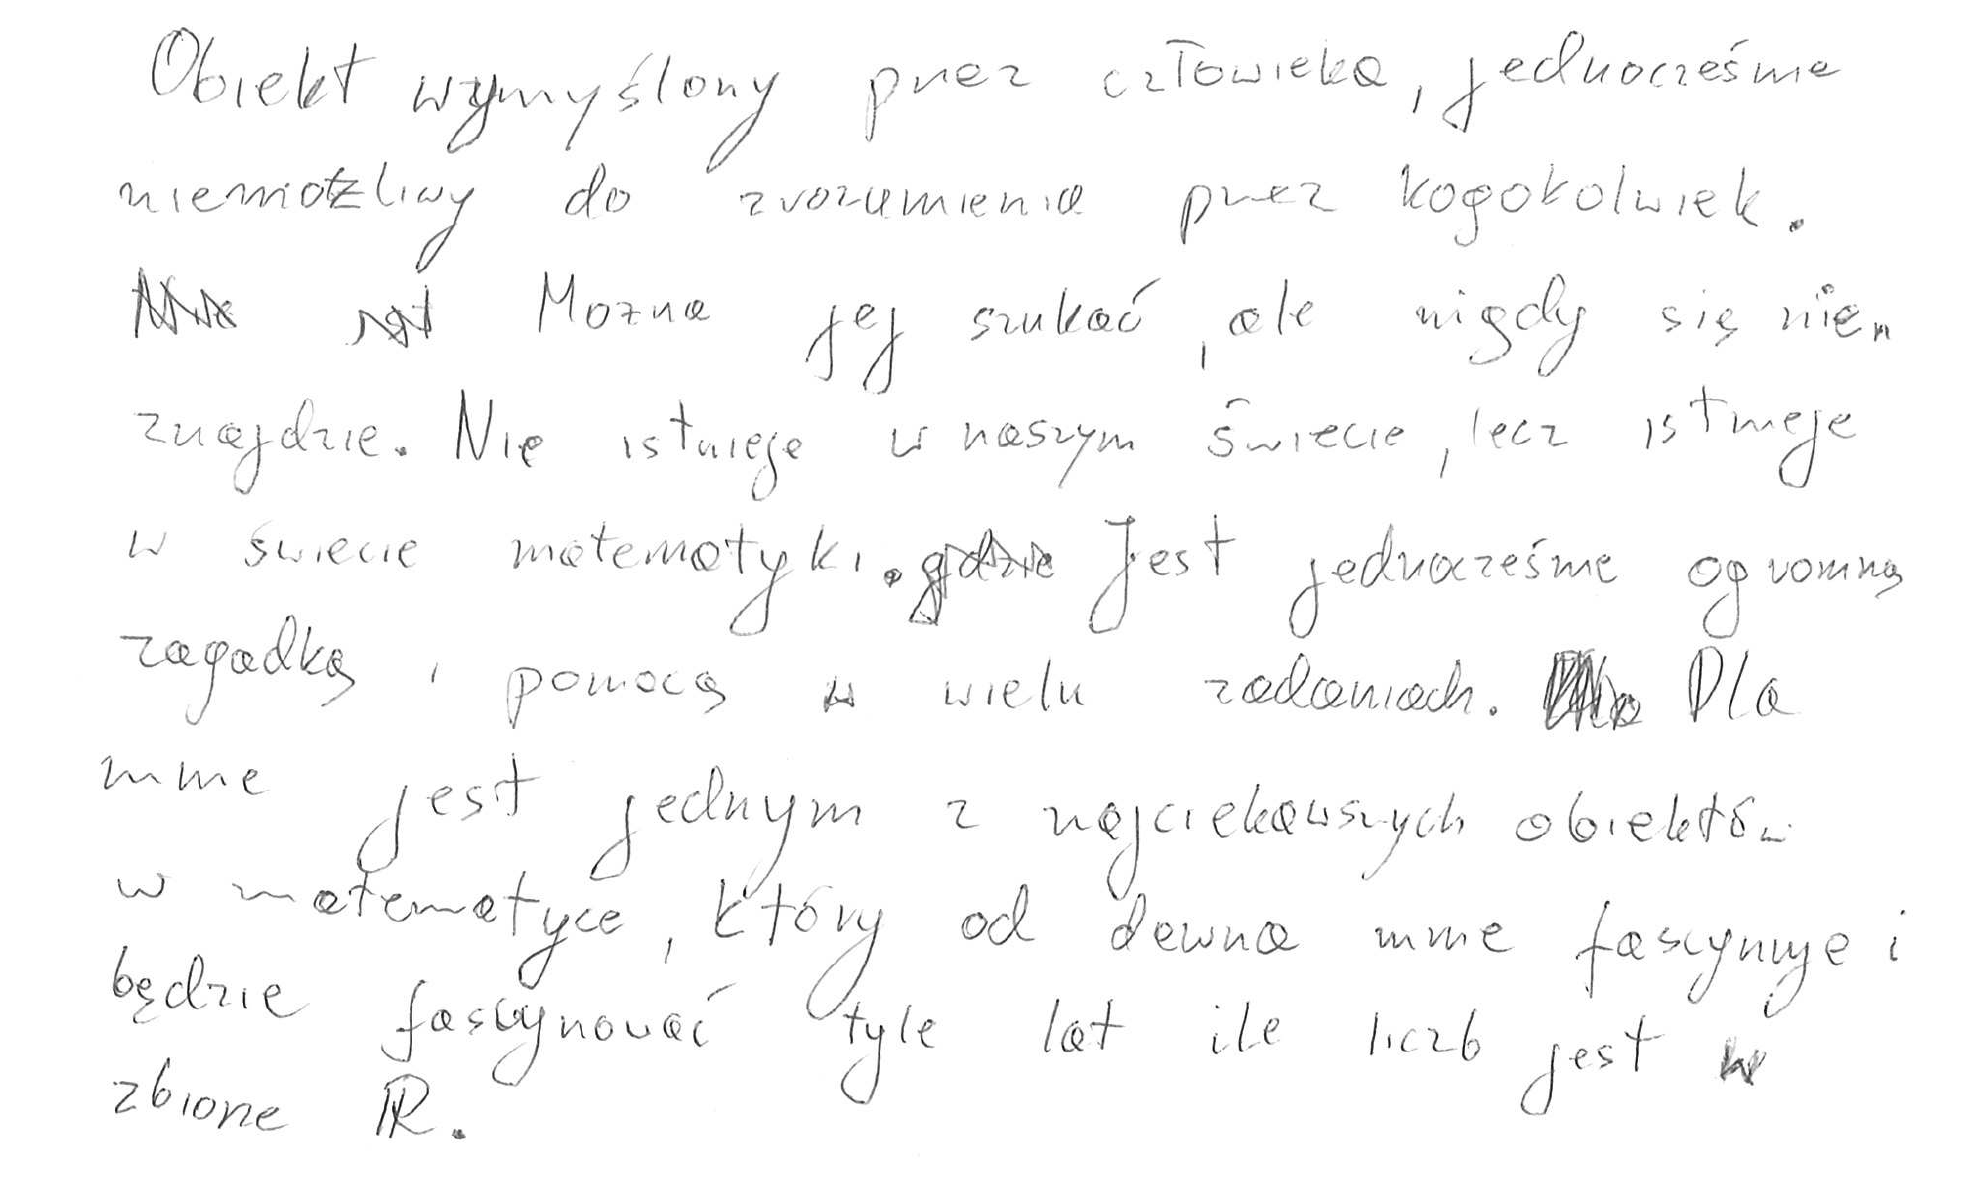 Obiekt wymyślony przez człowieka, jednocześnie
niemożliwy do zrozumienia przez kogokolwiek.
Można jej szukać, ale nigdy się nie
znajdzie. Nie istnieje w naszym świecie, lecz istnieje
w świecie matematyki. Jest jednocześnie ogromną
zagadką i pomocą w wielu zadaniach. Dla
mnie jest jednym z najciekawszych obiektów
w matematyce, który od dawna mnie fascynuje i
będzie fascynować tyle lat ile liczb jest w
zbiorze ℝ.